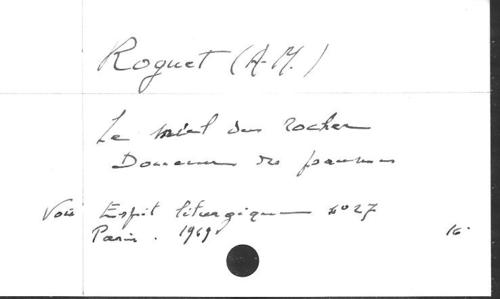 Roguet (A-M.)
Le miel du rocher
Douceur des psaumes
Voir Esprit liturgique n° 27
Paris. 1969
16.